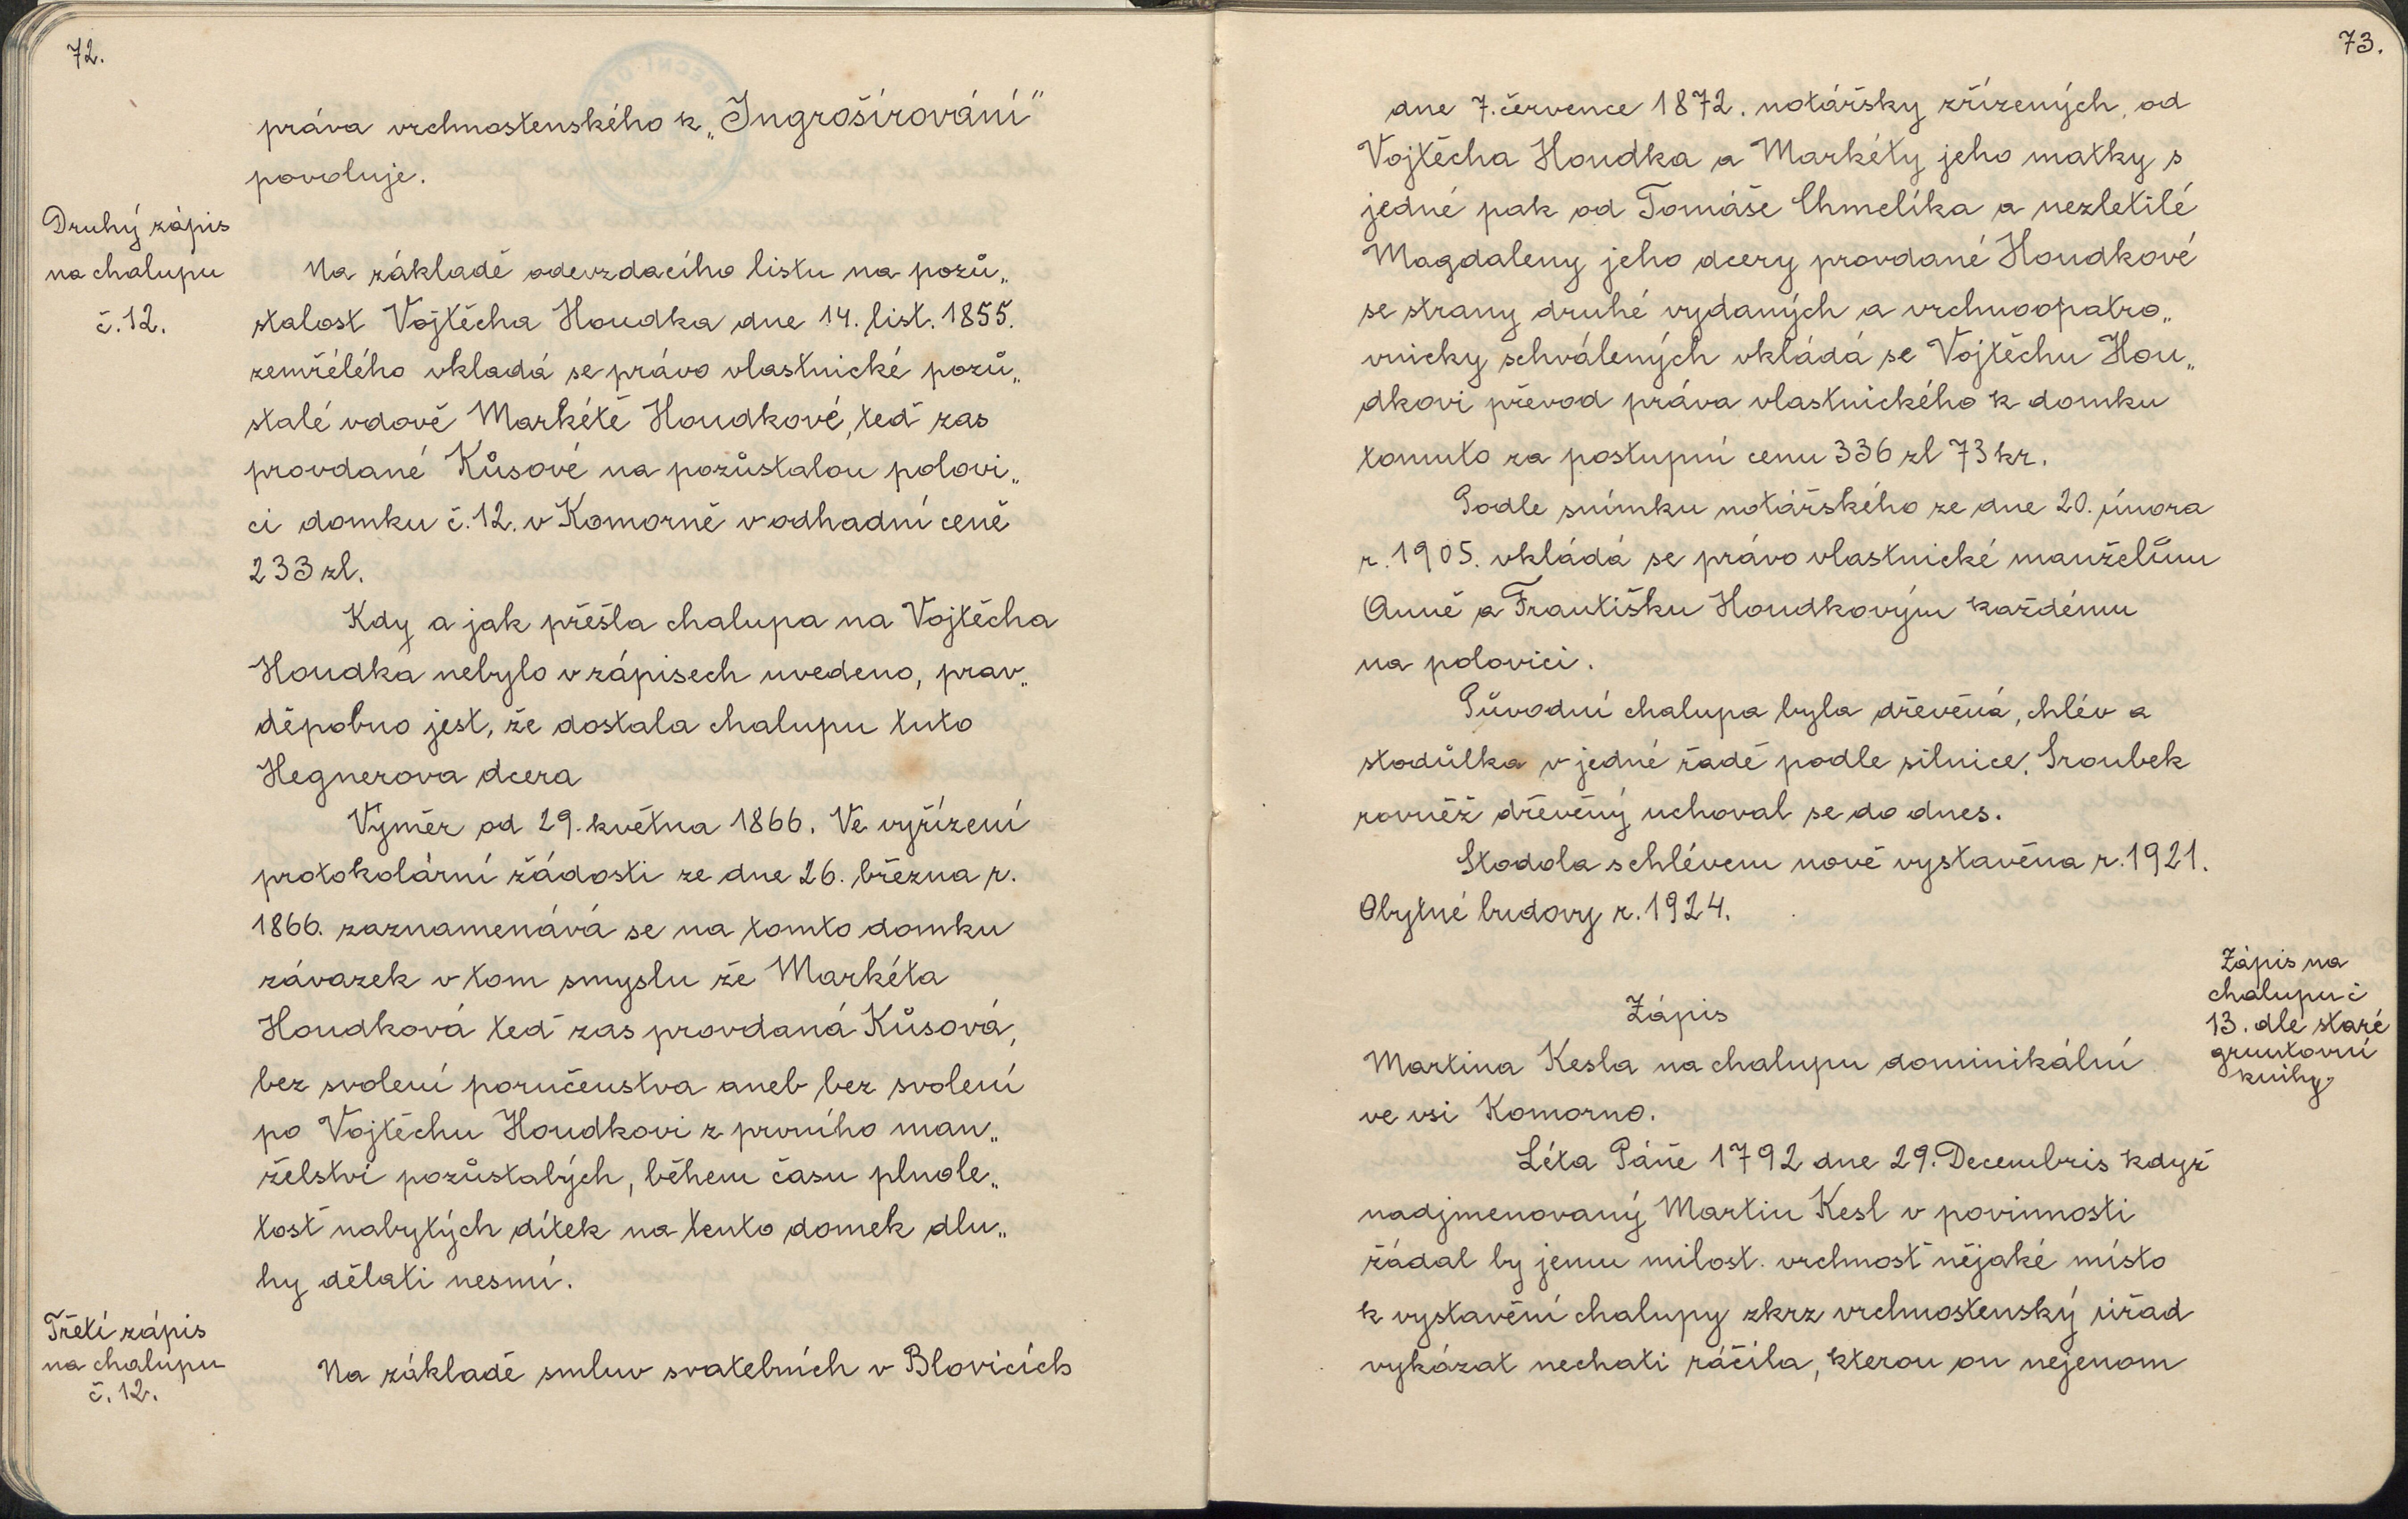 72.
práva vrchnostenského k „Ingrošírování"
povoluje.
Druhý zápis
na chalupu
č. 12.
Na základě odevzdacího listu na pozů„
stalost Vojtěcha Houdka dne 14. list. 1855.
zemřélého vkladá se právo vlastnické pozů„
stalé vdově Markétě Houdkové, teď zas
provdané Kůsové na pozůstalou polovi„
ci domku č. 12. v Komorně v odhadní ceně
233 zl.
Kdy a jak přešla chalupa na Vojtěcha
Houdka nebylo v zápisech uvedeno, prav„
děpobno jest, že dostala chalupu tuto
Hegnerova dcera
Výměr od 29. května 1866. Ve vyřízení
protokolární žádosti ze dne 26. března r.
1866. zaznamenává se na tomto domku
závazek v tom smyslu že Markéta
Houdková teď zas provdaná Kůsová,
bez svolení poručenstva aneb bez svolení
po Vojtěchu Houdkovi z prvního man„
želství pozůstalých, během času plnole„
tosť nabytých dítek na tento domek dlu„
hy dělati nesmí.
Třetí zápis
na chalupu
č. 12.
Na základě smluv svatebních v Blovicích
73.
dne 7. července 1872. notářsky zřízených, od
Vojtěcha Houdka a Markéty jeho matky s
jedné pak od Tomáše Chmelíka a nezletilé
Magdaleny jeho dcery provdané Houdkové
se strany druhé vydaných a vrchnoopatro„
vnicky schválených vkládá se Vojtěchu Hou„
dkovi převod práva vlastnického k domku
tomuto za postupní cenu 336 zl 73 kr.
Podle snímku notářského ze dne 20. února
r. 1905. vkládá se právo vlastnické manželům
Anně a Františku Houdkovým každému
na polovici.
Původní chalupa byla dřevěná, chlév a
stodůlka v jedné řadě podle silnice. Sroubek
rovněž dřevěný uchoval se do dnes.
Stodola s chlévem nově vystavěna r. 1921.
Obytné budovy r. 1924.
Zápis na
chalupu č
13. dle staré
gruntovní
knihy
Zápis
Martina Kesla na chalupu dominikální
ve vsi Komorno.
Léta Páně 1792 dne 29. Decembris když
nadjmenovaný Martin Kesl v povinnosti
žádal by jemu milost. vrchnosť nějaké místo
k vystavění chalupy zkrz vrchnostenský úřad
vykázat nechati ráčila, kterou on nejenom